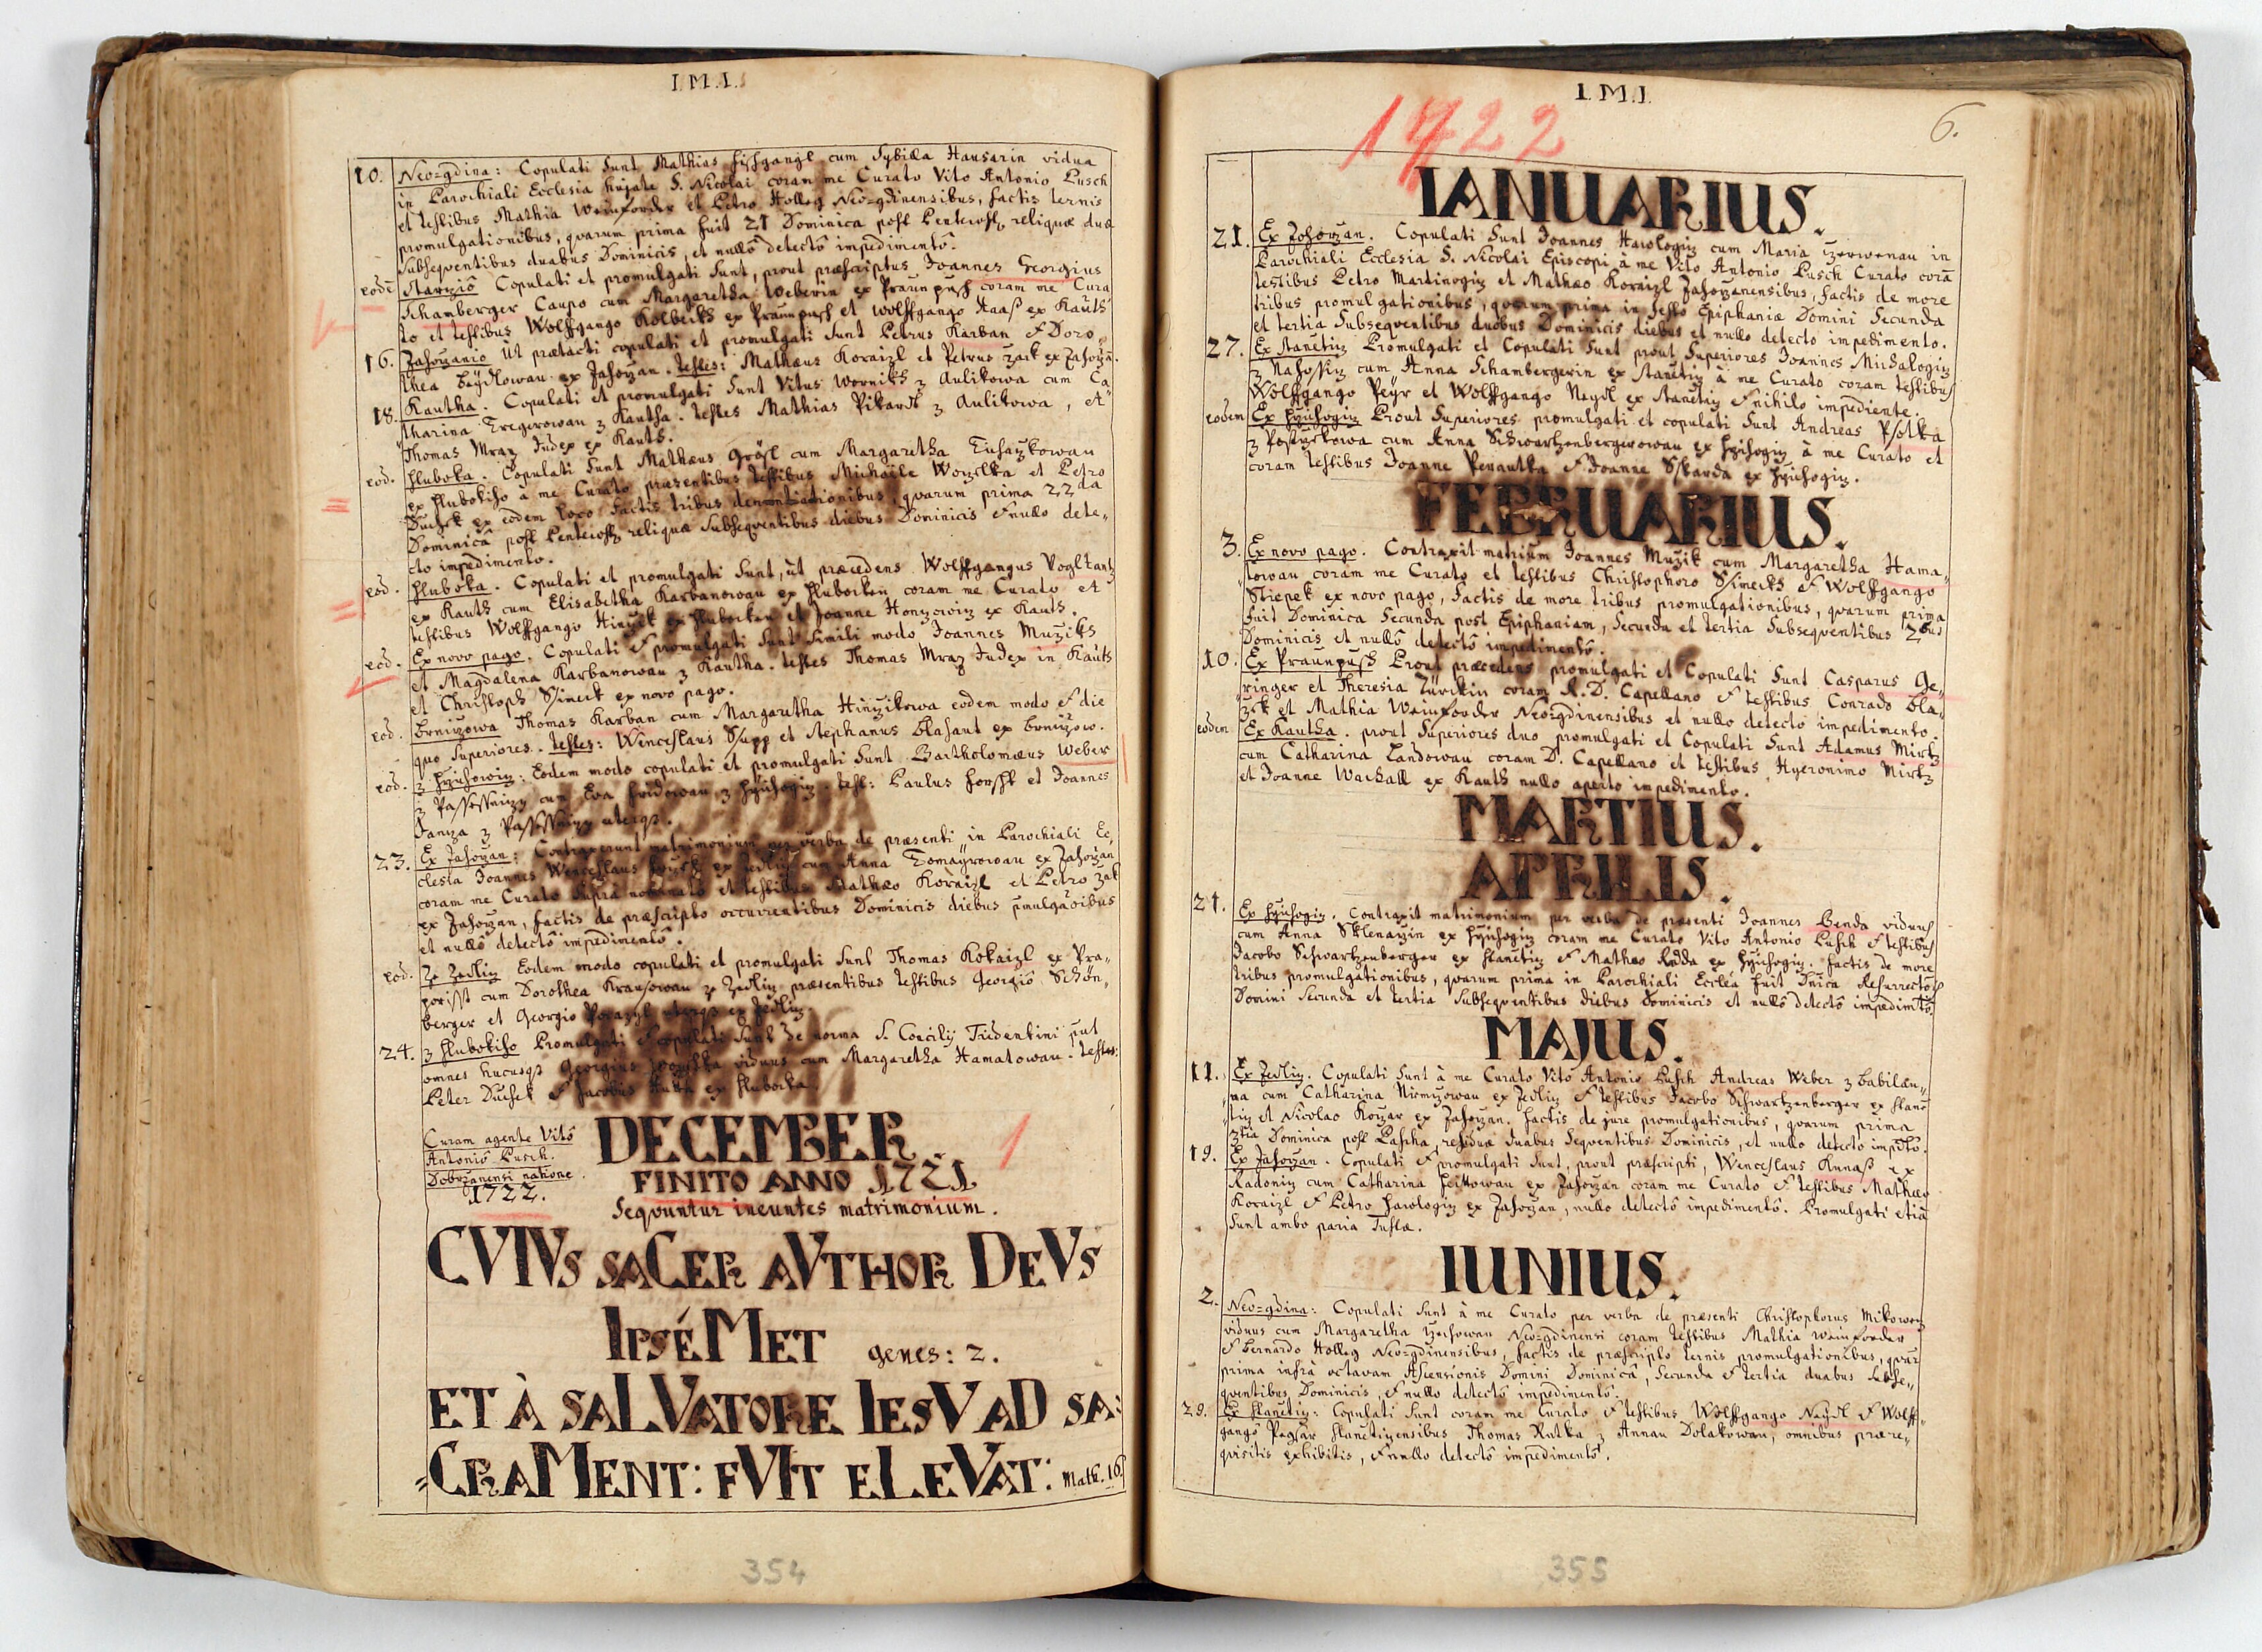 I.M.I.
10. Neo-gdina: Copulati sunt Mathias Fischgangl cum Sybilla Hauserin vidua
in Parochiali Ecclesia hujate S. Nicolai coram me Curato Vito Antonio Pusch
et testibus Mathia Weinforder et Petro Holleg Neo-gdinensibus, factis ternis
promulgationibus, qvarum prima fuit 21 Dominica post Pentecost, reliquæ duæ
subseqventibus duabus Dominicis, et nullô detectô impedimentô.
Copulati et promulgati sunt, prout præscriptus Joannes Georgius
Schamberger Caupo cum Margaretha Weberin ex Praunpusch coram me Cura
to et testibus Wolffgango Kolbecks ex Praunpusch et Wolffgango Haas ex Kauts
16. Ut prætacti copulati et promulgati sunt Petrus Karban & Doro
thea ex Zahorzan. Testes: Mathæus Koraizl et Petrus Zack ex Zahorza.
18. Kautha. Copulati et promulgati sunt Vitus Wornikh z Aulikowa cum Ca
tharina Tregerowau z Kautha. testes Mathias Pikardt z Aulikowa, et
Thomas Mraz Judex ex Kauth.
eod. Hluboka. Copulati sunt Mathæus Gröfl cum Margaretha
ex Hlubokiho à me Curato præsentibus testibus Michaële et Petro
Duchek ex eodem loco factis tribus denuntiationibus, qvarum prima 22da
Dominicâ post Pentecost, reliquæ subseqventibus diebus Dominicis & nullo dete,,
cto impedimento.
eod. Hluboka. Copulati et promulgati sunt, ùt præcedens Wolffgangus Vogltantz
ex Kauth cum Elisabetha Karbanowau ex Hluboken coram me Curato et
testibus Wolffgango ex Hluboken et Joanne ex Kauts.
eod. Ex novo pago. Copulati & promulgati sunt simili modo Joannes Muziks
et Magdalena Karbanowau z Kautha. testes Thomas Mraz Judex in Kauts
et Christoph ex novo pago.
eod. Thomas Karban cum Margaretha eodem modo & die
quo superiores. testes: Wenceslaus et Stephanus Blahaut ex
eod. Eodem modo copulati et promulgati sunt Bartholomæus Weber
cum Eva test: Paulus et Joannes
23. Ex Zahorzan: Contraxerunt matrimonium per verba de præsenti in Parochiali Ec,
clesia Joannes Wenceslaus cum Anna ex Zahorzan
coram me Curato supra nominato et testibus Mathæo Koraizl et Petro Zak
ex Zahorzan, factis de præscripto occurrentibus Dominicis diebus
et nullô detectô impedimentô.
eod. Ze Zedliz Eodem modo copulati et promulgati sunt Thomas Kokaizl ex
cum Dorothea ze Zedliz præsentibus testibus Georgiô Schön,
berger et Georgio ex Zedliz
24. z Hlubokiho Promulgati & copulati sunt de norma S. Concilij Tridentini
omnes hucusqz Georgius viduus cum Margaretha Hamatowau. testes:
Peter Duchek & Jacobus ex Hluboka
Curam agente Vitô
Antoniô Pusch.
Dobrzanensi natione.
1722.
DECEMBER.
FINITO ANNO 1721
Seqvuntur ineuntes matrimonium.
CVIVS SACER AVTHOR DEVS
IPSÉMET genes: 2.
ET À SALVATORE IESV AD SA:
=CRAMENT: FVIT ELEVAT: Math. 16.
354
I.M.I.
1722
6.
IANUARIUS.
21. Ex Zahorzan. Copulati sunt Joannes cum Maria in
Parochiali Ecclesia S. Nicolai Episcopi à me Vito Antonio Pusch Curato corã
testibus Petro Martinogiz et Mathæo Koraizl Zahorzanensibus, factis de more
tribus promulgationibus, qvarum prima in festo Epiphaniæ Domini secunda
et tertia subseqventibus duobus Dominicis diebus et nullo detecto impedimento.
27. Ex Stanetiz Promulgati et Copulati sunt prout superiores Joannes Michalogiz
cum Anna Schambergerin ex Stanetiz à me Curato coram testibus
Wolffgango Peyr et Wolffgango Neydl ex Stanetiz & nihilo impediente.
eodem Prout superiores promulgati et copulati sunt Andreas Psotka
cum Anna Schwartzenbergerowau à me Curato et
coram testibus Joanne & Joanne Skarda
FEBRUARIUS.
3. Ex novo pago. Contraxit matrium Joannes Muzik cum Margaretha Hama,
towau coram me Curato et testibus Christophoro & Wolffgango
Stiepek ex novo pago, factis de more tribus promulgationibus, qvarum prima
fuit Dominica secunda post Epiphaniam, secunda et tertia subseqventibus 2bus
Dominicis et nullô detectô impedimentô.
10. Ex Praunpusch Prout præcedens promulgati et Copulati sunt Casparus Ge,,
ringer et Theresia coram R.D. Capellano & testibus Conrado Bla,
zek et Mathia Weinforder Neogdinensibus et nullo detecto impedimento.
eodem Ex Kautha. prout superiores duo promulgati et Copulati sunt Adamus Mirtz
cum Catharina Landowau coram D. Capellano et testibus Hyeronimo Mirtz
et Joanne Wachall ex Kauts nullo aperto impedimento.
MARTIUS.
APRILIS.
21. Contraxit matrimonium per verba de præsenti Joannes Benda viduus
cum Anna coram me Curato Vito Antonio Pusch & testibus
Jacobo Schwartzenberger ex Stanetiz & Mathæo factis de more
tribus promulgationibus, qvarum prima in Parochiali Ecclea fuit Dnica
Domini secunda et tertia subseqventibus diebus Dominicis et nullô detectô impedimtô.
MAJUS.
11. Ex Zedliz. Copulati sunt à me Curato Vito Antonio Pusch Andreas Weber z Babilau,,
na cum Catharina ex Zedliz & testibus Jacobo Schwartzenberger ex Stane
tiz et Nicolao ex Zahorzan, factis de jure promulgationibus, qvarum prima
3tia Dominica post Pascha, residuæ duabus seqventibus Dominicis, et nullo detecto impdto.
19. Ex Zahorzan. Copulati & promulgati sunt, prout præscripti, Wenceslaus Kunass ex
Radoniz cum Catharina ex Zahorzan coram me Curato & testibus Mathæo
Koraizl & Petro ex Zahorzan, nullo detectô impedimentô. Promulgati etiã
sunt ambo paria
IUNIUS.
2. Neo-gdina: Copulati sunt à me Curato per verba de præsenti Christophorus
viduus cum Margaretha Neo-gdinensi coram testibus Mathia Weinforder
& Bernardo Holleg Neo-gdinensibus, factis de præscripto ternis promulgationibus, qvar
prima infra octavam Ascensionis Domini Dominicâ, secunda & tertia duabus subse,,
qventibus Dominicis, & nullo detectô impedimentô.
29. Ex Stanetiz: Copulati sunt coram me Curato & testibus Wolffgango Neydl & Wolff,
gangô Stanetizensibus Thomas z Annau omnibus prære,,
qvisitis exhibitis, & nullo detectô impedimentô.
355